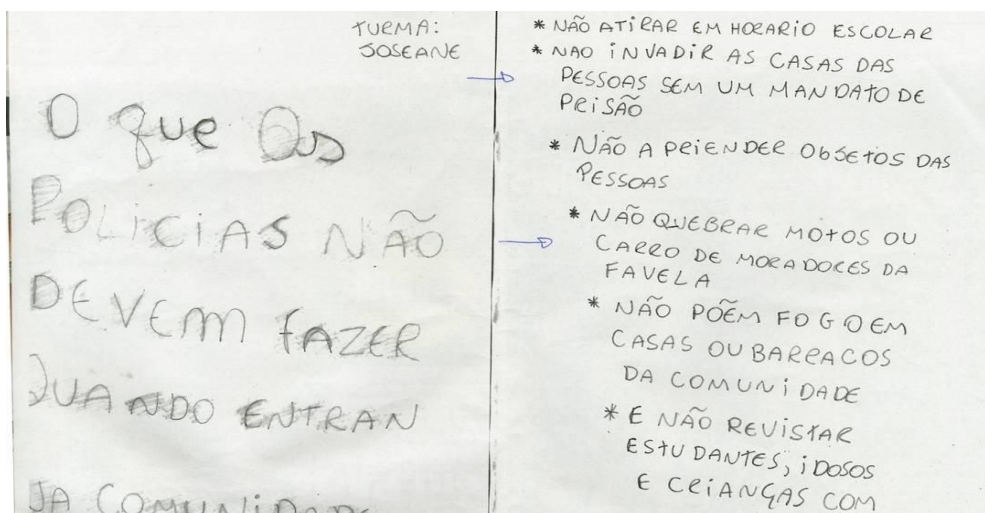 TURMA:
JOSEANE
O que Os
POLICIAS NÃO
DEVEM FAZER
QUANDO ENTRAN
NA COMUNIDADE
* NÃO ATIRAR EM HORARIO ESCOLAR
* NAO INVADIR AS CASAS DAS
PESSOAS SEM UM MANDATO DE
PRISÃO
* NÃO A PRIENDER ObJETOS DAS
PESSOAS
* NÃO QUEBRAR MOTOS OU
CARRO DE MORADORES DA
FAVELA
* NÃO PÕEM FOGO EM
CASAS OU BARRACOS
DA COMUNIDADE
* E NÃO REVISTAR
ESTUDANTES, iDOSOS
E CRIANÇAS COM